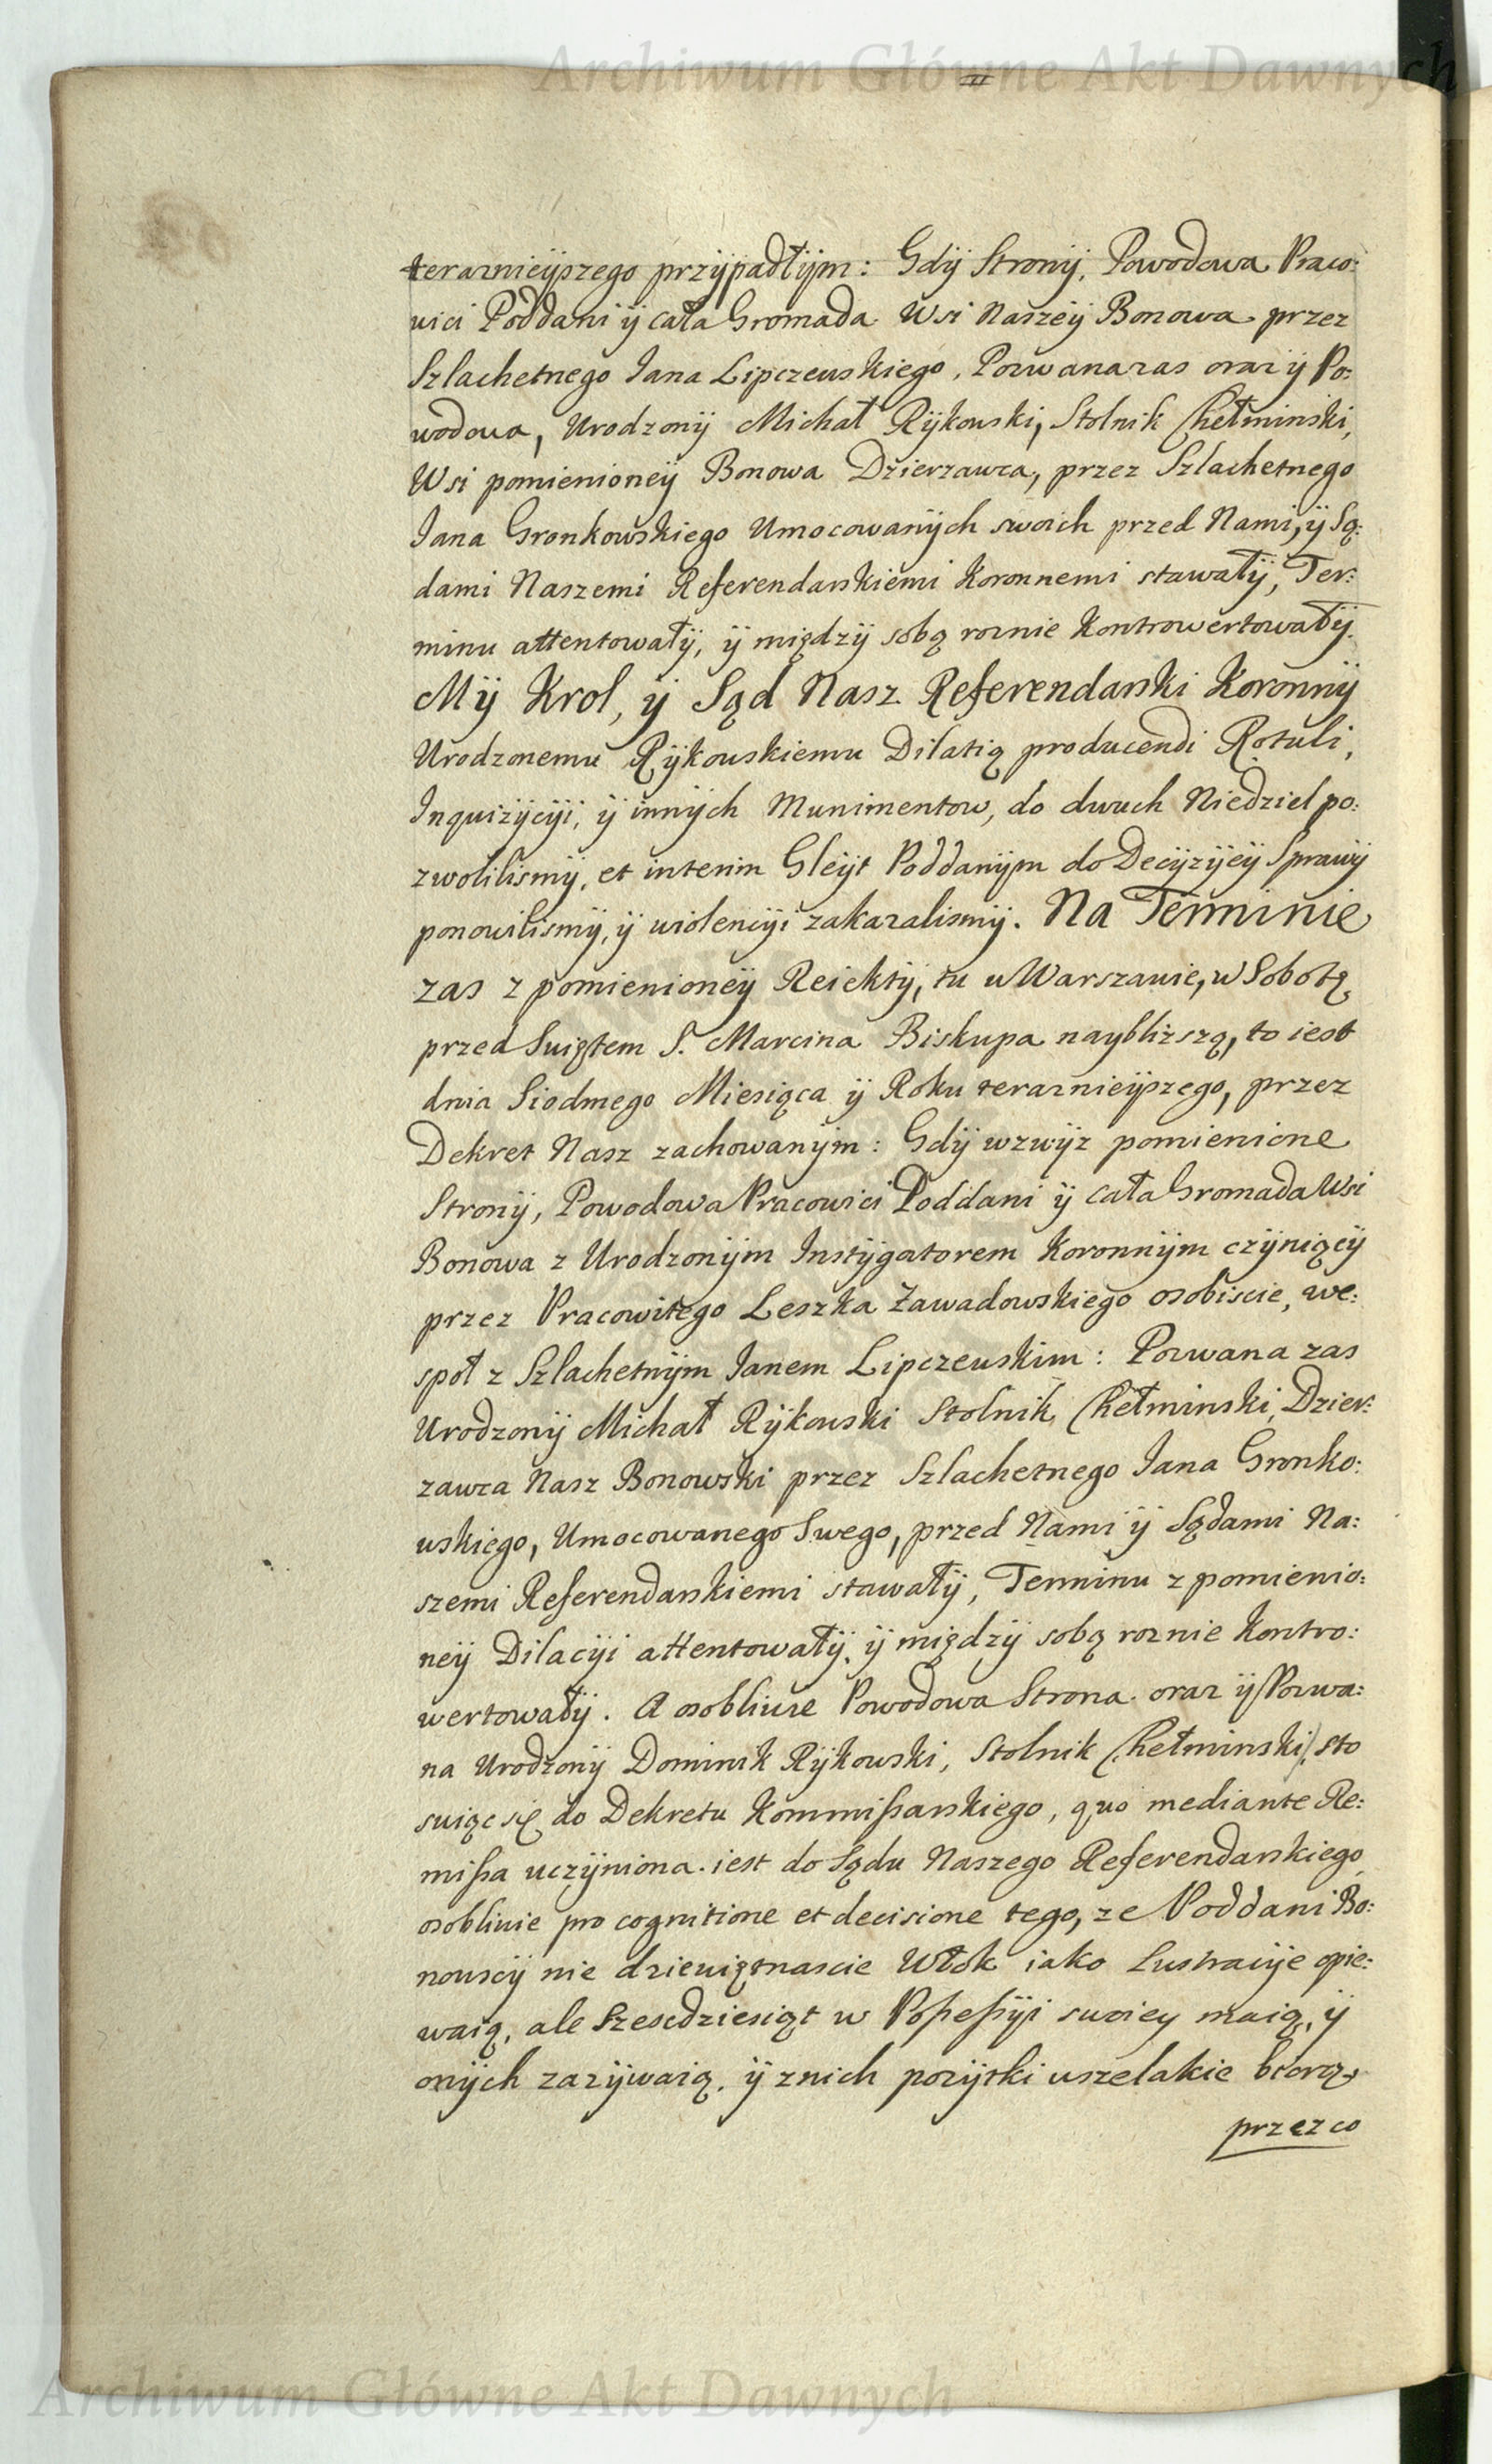 Archiwum Główne Akt Dawnych
teraznieÿszego przÿpadłÿm: Gdÿ Stronÿ, Powodowa Praco:
wici Poddani ÿ cała Gromada Wsi Naszeÿ Bonowa przez
Szlachetnego Jana Lipczewskiego, Pozwana zas oraz ÿ Po:
wodowa, Urodzonÿ Michał Rÿkowski, Stolnik Chełminski,
Wsi pomienioneÿ Bonowa Dzierzawca, przez Szlachetnego
Jana Gronkowskiego Umocowanÿch swoich przed Nami, ÿ Są:
dami Naszemi Referendarskiemi Koronnemi stawałÿ, Ter:
minu attentowałÿ, ÿ międzÿ sobą roznie Kontrowertowałÿ.
Mÿ Krol, ÿ Sąd Nasz Referendarski Koronnÿ
Urodzonemu Rÿkowskiemu Dilatią producendi Rotuli,
Inquizÿcÿi, ÿ innÿch Munimentow, do dwuch Niedziel po:
zwolilismÿ, et interim Gleÿt Poddanÿm do Decÿzÿeÿ Sprawÿ
ponowilismÿ, ÿ violencÿi zakazalismÿ. Na Terminie
zas z pomienioneÿ Reiektÿ, tu w Warszawie, w Sobotę
przed Swiętem S. Marcina Biskupa naybliższą, to iest
dnia Siodmego Miesiąca ÿ Roku teraznieÿszego, przez
Dekret Nasz zachowanÿm: Gdÿ wzwÿz pomienione
Stronÿ, Powodowa Pracowici Poddani ÿ cała Gromada Wsi
Bonowa z Urodzonÿm Instÿgatorem Koronnÿm czÿniąceÿ
przez Pracowitego Leszka Zawadowskiego osobiscie, we:
społ z Szlachetnÿm Janem Lipczewskim: Pozwana zas
Urodzonÿ Michał Rÿkowski Stolnik Chełminski, Dzier:
zawca Nasz Bonowski przez Szlachetnego Jana Gronko:
wskiego, Umocowanego Swego, przed Nami ÿ Sądami Na:
szemi Referendarskiemi stawałÿ, Terminu z pomienio:
neÿ Dilacÿi attentowałÿ, ÿ międzÿ sobą roznie Kontro:
wertowałÿ. A osobliwie Powodowa Strona oraz ÿ Pozwa:
na Urodzonÿ Dominik Rÿkowski, Stolnik Chełminski, sto
suiąc się do Dekretu Kommißarskiego, quo mediante Re:
mißa uczÿniona iest do Sądu Naszego Referendarskiego
osobliwie pro cognitione et decisione tego, ze Poddani Bo:
nowscÿ nie dziewiętnascie Włok iako Lustracÿe opie:
waią, ale Szescdziesiąt w Poßeßÿi swoiey maią, ÿ
onÿch zazÿwaią, ÿ z nich pozÿtki wszelakie biorą,
przez co
Archiwum Główne Akt Dawnych